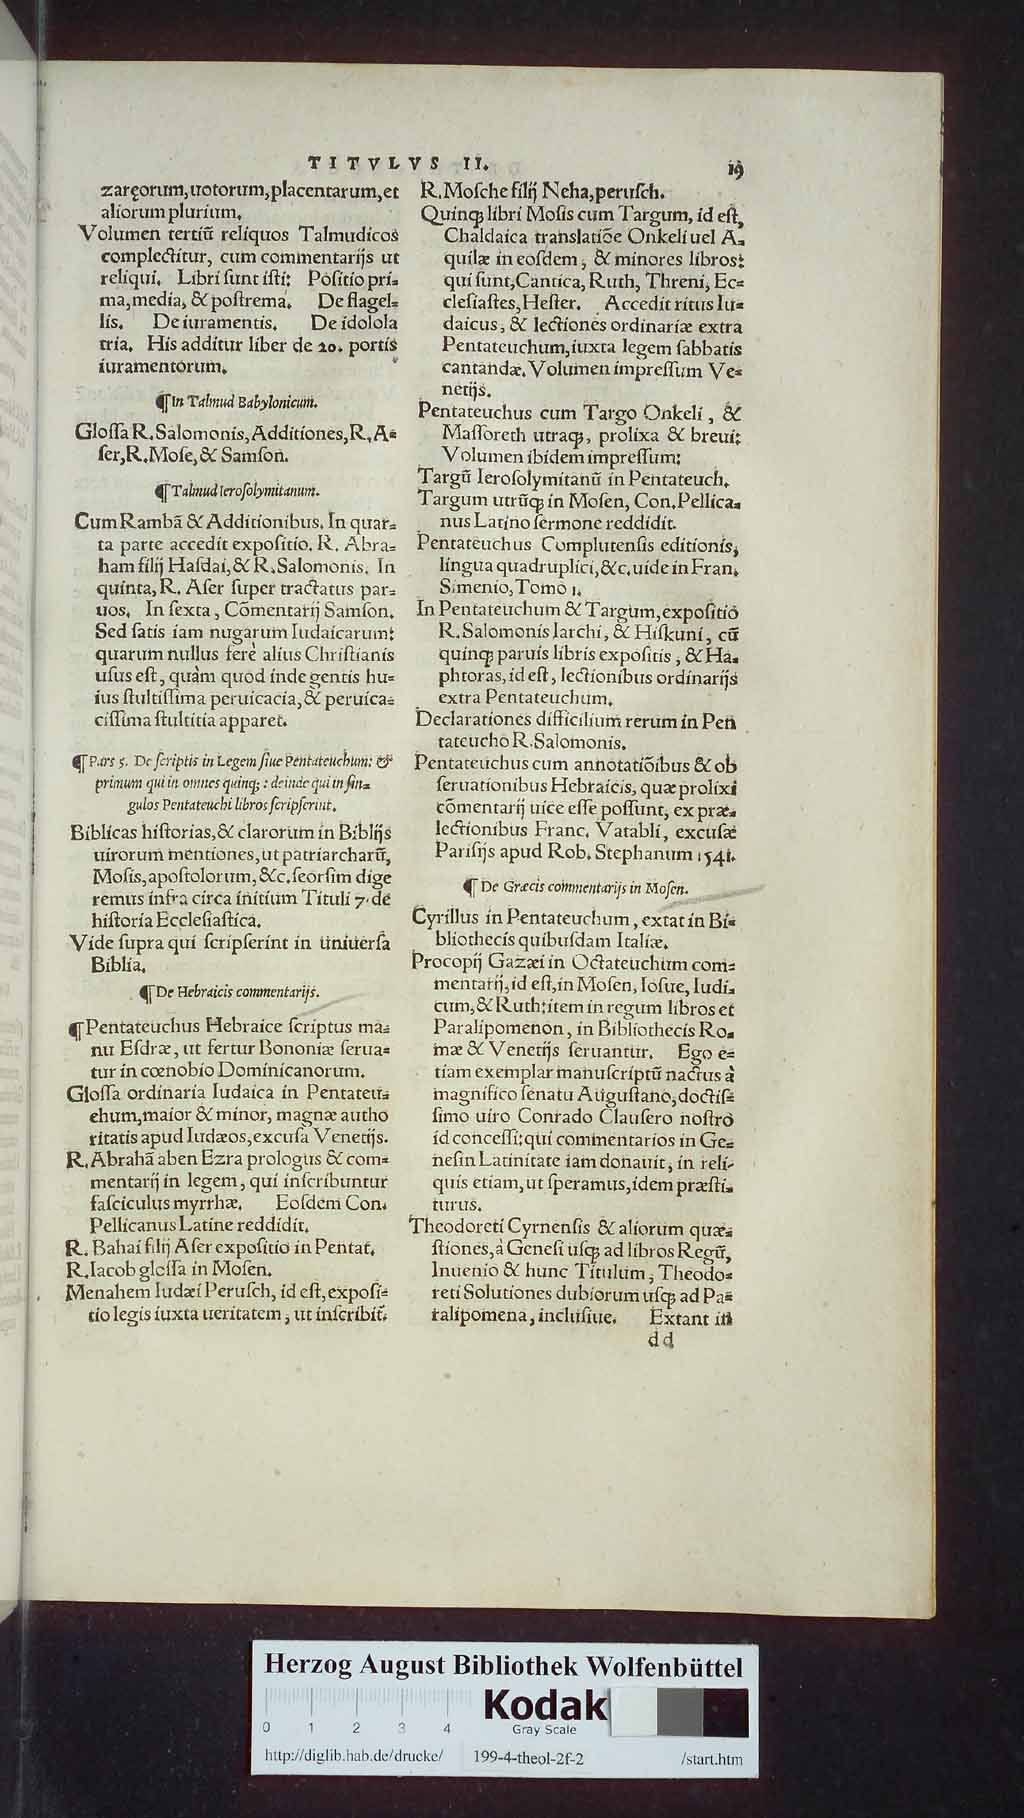 TITVLVS II.
19
zaręorum, uotorum, placentarum, et
aliorum plurium.
Volumen tertiũ reliquos Talmudicos
complectitur, cum commentarijs ut
reliqui. Libri sunt isti: Positio pri-
ma, media, & postrema. De flagel-
lis. De iuramentis. De idolola
tria. His additur liber de 20. portis
iuramentorum.
¶ In Talmud Babylonicum.
Glossa R. Salomonis, Additiones, R. A-
ser, R. Mose, & Samson.
¶ Talmud Ierosolymitanum.
Cum Rambã & Additionibus. In quar-
ta parte accedit expositio. R. Abra-
ham filij Hasdai, & R. Salomonis. In
quinta, R. Aser super tractatus par-
uos. In sexta, Cõmentarij Samson.
Sed satis iam nugarum Iudaicarum:
quarum nullus ferè alius Christianis
usus est, quàm quod inde gentis hu-
ius stultissima peruicacia, & peruica-
cissima stultitia apparet.
¶ Pars 5. De scriptis in Legem siue Pentateuchum: &
primum qui in omnes quinq;: deinde qui in sin-
gulos Pentateuchi libros scripserint.
Biblicas historias, & clarorum in Biblijs
uirorum mentiones, ut patriarcharũ,
Mosis, apostolorum, &c. seorsim dige
remus infra circa initium Tituli 7. de
historia Ecclesiastica.
Vide supra qui scripserint in uniuersa
Biblia.
¶ De Hebraicis commentarijs.
¶ Pentateuchus Hebraice scriptus ma-
nu Esdræ, ut fertur Bononiæ serua-
tur in cœnobio Dominicanorum.
Glossa ordinaria Iudaica in Pentateu-
chum, maior & minor, magnæ autho
ritatis apud Iudæos, excusa Venetijs.
R. Abrahã aben Ezra prologus & com-
mentarij in legem, qui inscribuntur
fasciculus myrrhæ. Eosdem Con.
Pellicanus Latine reddidit.
R. Bahai filij Aser expositio in Pentat.
R. Iacob glossa in Mosen.
Menahem Iudæi Perusch, id est, exposi-
tio legis iuxta ueritatem, ut inscribit̃.
R. Mosche filij Neha, perusch.
Quinq; libri Mosis cum Targum, id est,
Chaldaica translatiõe Onkeli uel A-
quilæ in eosdem, & minores libros:
qui sunt, Cantica, Ruth, Threni, Ec-
clesiastes, Hester. Accedit ritus Iu-
daicus, & lectiones ordinariæ extra
Pentateuchum, iuxta legem sabbatis
cantandæ. Volumen impressum Ve-
netijs.
Pentateuchus cum Targo Onkeli, &
Massoreth utraq;, prolixa & breui:
Volumen ibidem impressum:
Targũ Ierosolymitanũ in Pentateuch.
Targum utrũq; in Mosen, Con. Pellica-
nus Latino sermone reddidit.
Pentateuchus Complutensis editionis,
lingua quadruplici, &c. uide in Fran.
Simenio, Tomo 1.
In Pentateuchum & Targum, expositio
R. Salomonis Iarchi, & Hiskuni, cũ
quinq; paruis libris expositis, & Ha-
phtoras, id est, lectionibus ordinarijs
extra Pentateuchum.
Declarationes difficilium rerum in Pen
tateucho R. Salomonis.
Pentateuchus cum annotatiõibus & ob
seruationibus Hebraicis, quæ prolixi
cõmentarij uice esse possunt, ex præ-
lectionibus Franc. Vatabli, excusæ
Parisijs apud Rob. Stephanum 1541.
¶ De Græcis commentarijs in Mosen.
Cyrillus in Pentateuchum, extat in Bi-
bliothecis quibusdam Italiæ.
Procopij Gazæi in Octateuchum com-
mentarij, id est, in Mosen, Iosue, Iudi-
cum, & Ruth: item in regum libros et
Paralipomenon, in Bibliothecis Ro-
mæ & Venetijs seruantur. Ego e-
tiam exemplar manuscriptũ nactus à
magnifico senatu Augustano, doctis-
simo uiro Conrado Clausero nostro
id concessi: qui commentarios in Ge-
nesin Latinitate iam donauit, in reli-
quis etiam, ut speramus, idem præsti-
turus.
Theodoreti Cyrnensis & aliorum quæ-
stiones, à Genesi usq; ad libros Regũ,
Inuenio & hunc Titulum, Theodo-
reti Solutiones dubiorum usq; ad Pa-
ralipomena, inclusiue. Extant in
dd
Herzog August Bibliothek Wolfenbüttel
0 1 2 3 4
Kodak
Gray Scale
http://diglib.hab.de/drucke/ 199-4-theol-2f-2 /start.htm